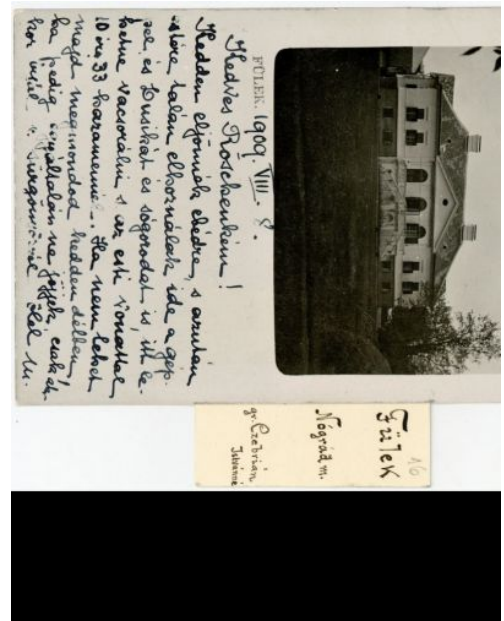 FÜLEK. 1909. VIII. 8.
Kedves Roschenkém!
Kedden eljönnék ebédre, s azután
estére talán elhoználak ide a gép-
pel, és Dusikát és sógorodat is, itt le-
hetne vacsorálni s az esti vonattal
10 óra 33 hazamenni. Ha nem lehet
majd megmondod kedden délben,
ba pedig ne jöjjek, csak
kor írjál
Ölel M.
16
Fülek
Nógrád m.
gr. Czebrián
Istvánné